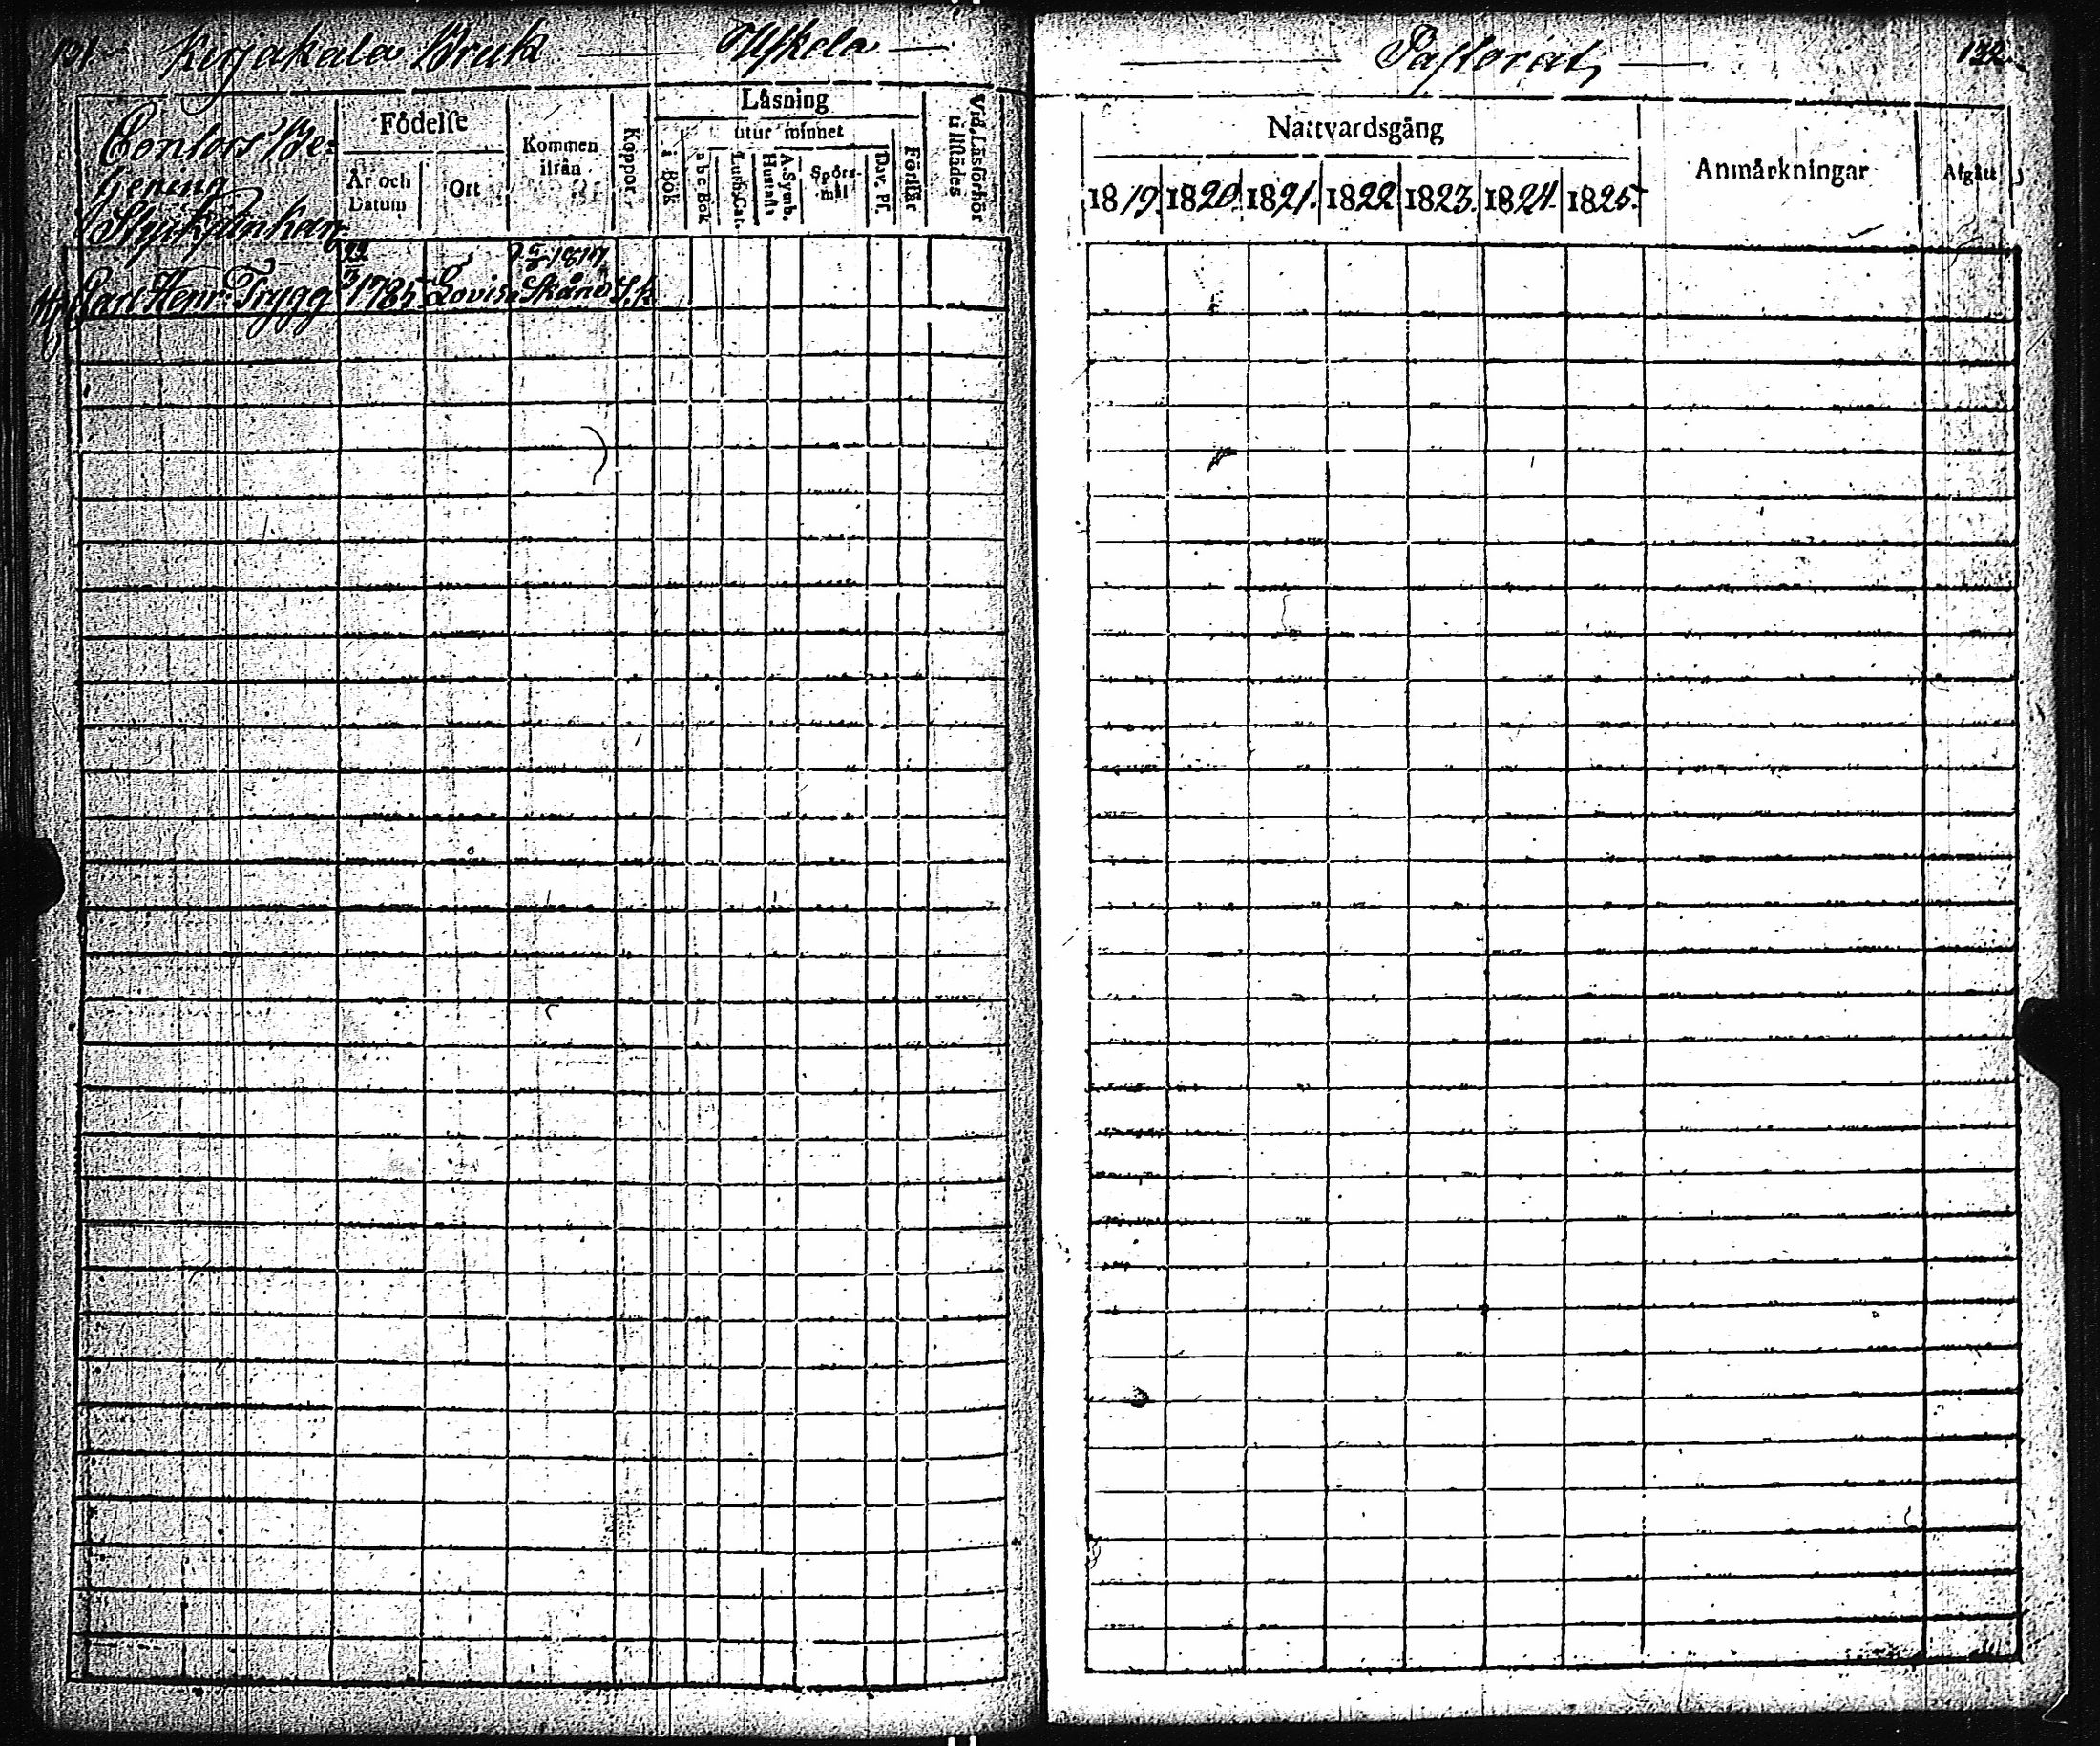 131 Kirjakala Bruk Uskela
Pastorat, 132
Contors Be-
tjening
Födelse
År och Datum
Ort
Kommen ifrån
Koppor
Läsning
i Bok
utur minnet
a b c Bok
Luth. Cat.
Hustafla
A. Symb.
Spörsmål
Dav. Ps.
Förstår
Vid Läsförhör tillstädes
Nattvardsgång
1819. 1820. 1821. 1822 1823. 1824. 1825.
Anmärkningar
Afgått
Carl Henr. Trygg 22/3 1785 Lovisa 1817 Skåne